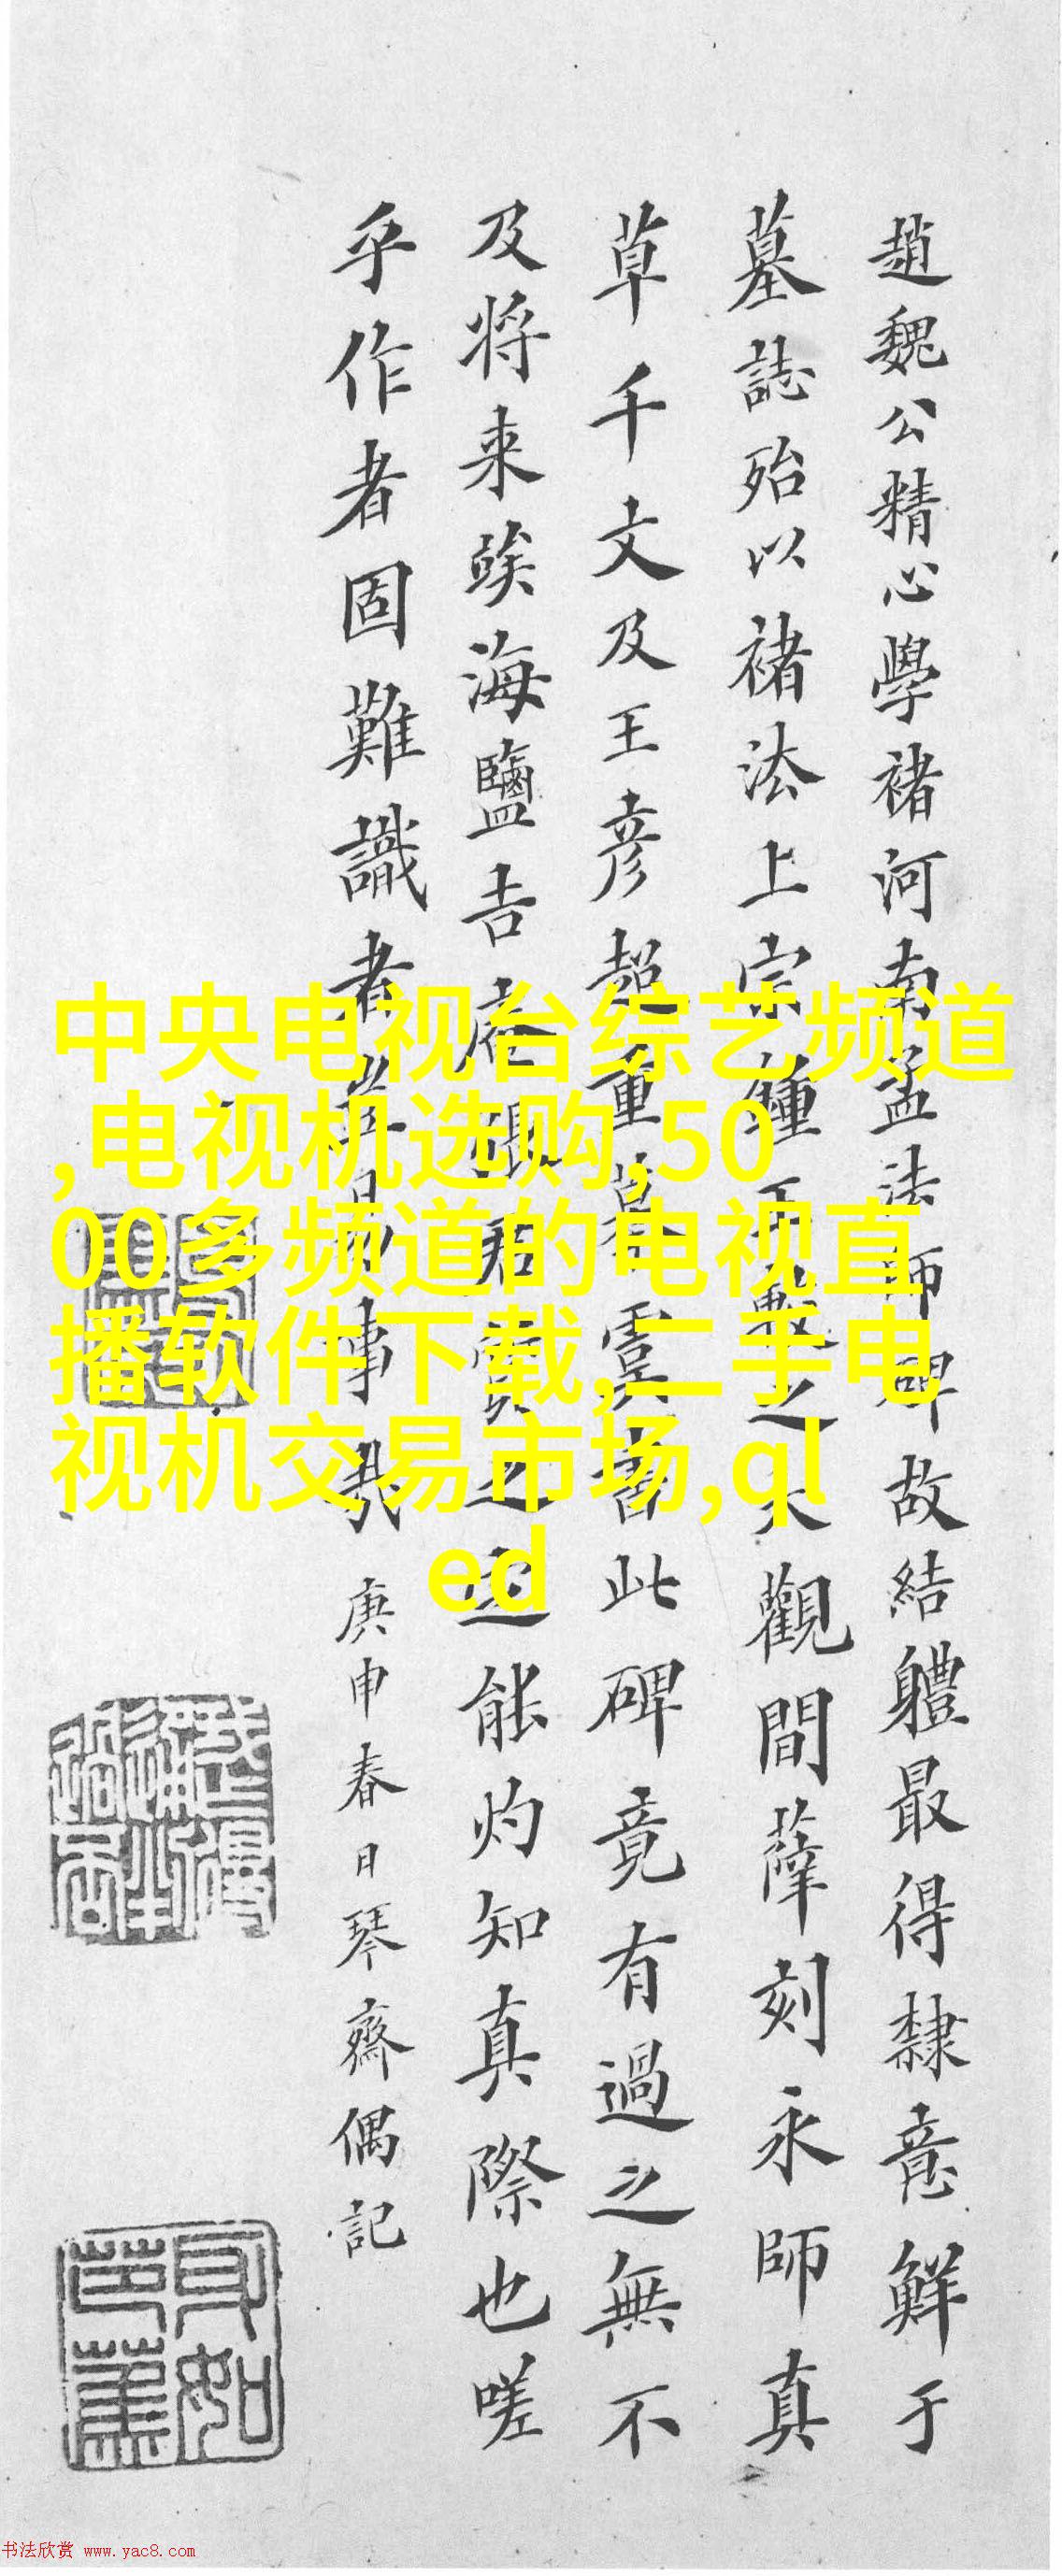 趙魏公精心學褚河南孟法師碑故結軆最得隸意鮮于
墓誌殆以褚法上宗鍾王戲之大觀間薛刻永師真
草千文及王彦超重摹虞書此碑竟有過之無不
及将来俟海鹽吉府張君之之能灼知真際也嗟
乎作者固難識者豈易事哉庚申春日琴齋偶記
中央电视台综艺频道
,电视机选购,50
00多频道的电视直
播软件下载,二手电
视机交易市场,ql
ed
书法欣赏 www.yac8.com